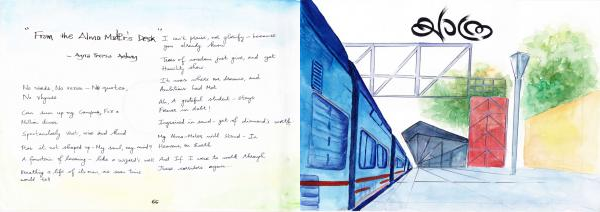 "From the Alma Mater's Desk"
No words, No verse - No quotes,
No rhymes
Can sum up my campus, For a
Million dimes
Spectacularly Vast, wise and kind
Has it not shaped up - My soul, my mind?
A fountain of learning - like a wizard's well
Breathing a life of its own, as even time
would tell
I can't praise, nor glorify - because
you already know
Trees of wisdom just give, and yet
Humility show
It was where my dreams, and
Ambitions had Met
Ah, A grateful student - Stays
Forever in debt!
Ingrained in sand - yet of diamond's worth
My Alma-Mater will Stand - In
Heavens, on Earth
And If I were to walk through
These corridors again...
66
യാത്ര